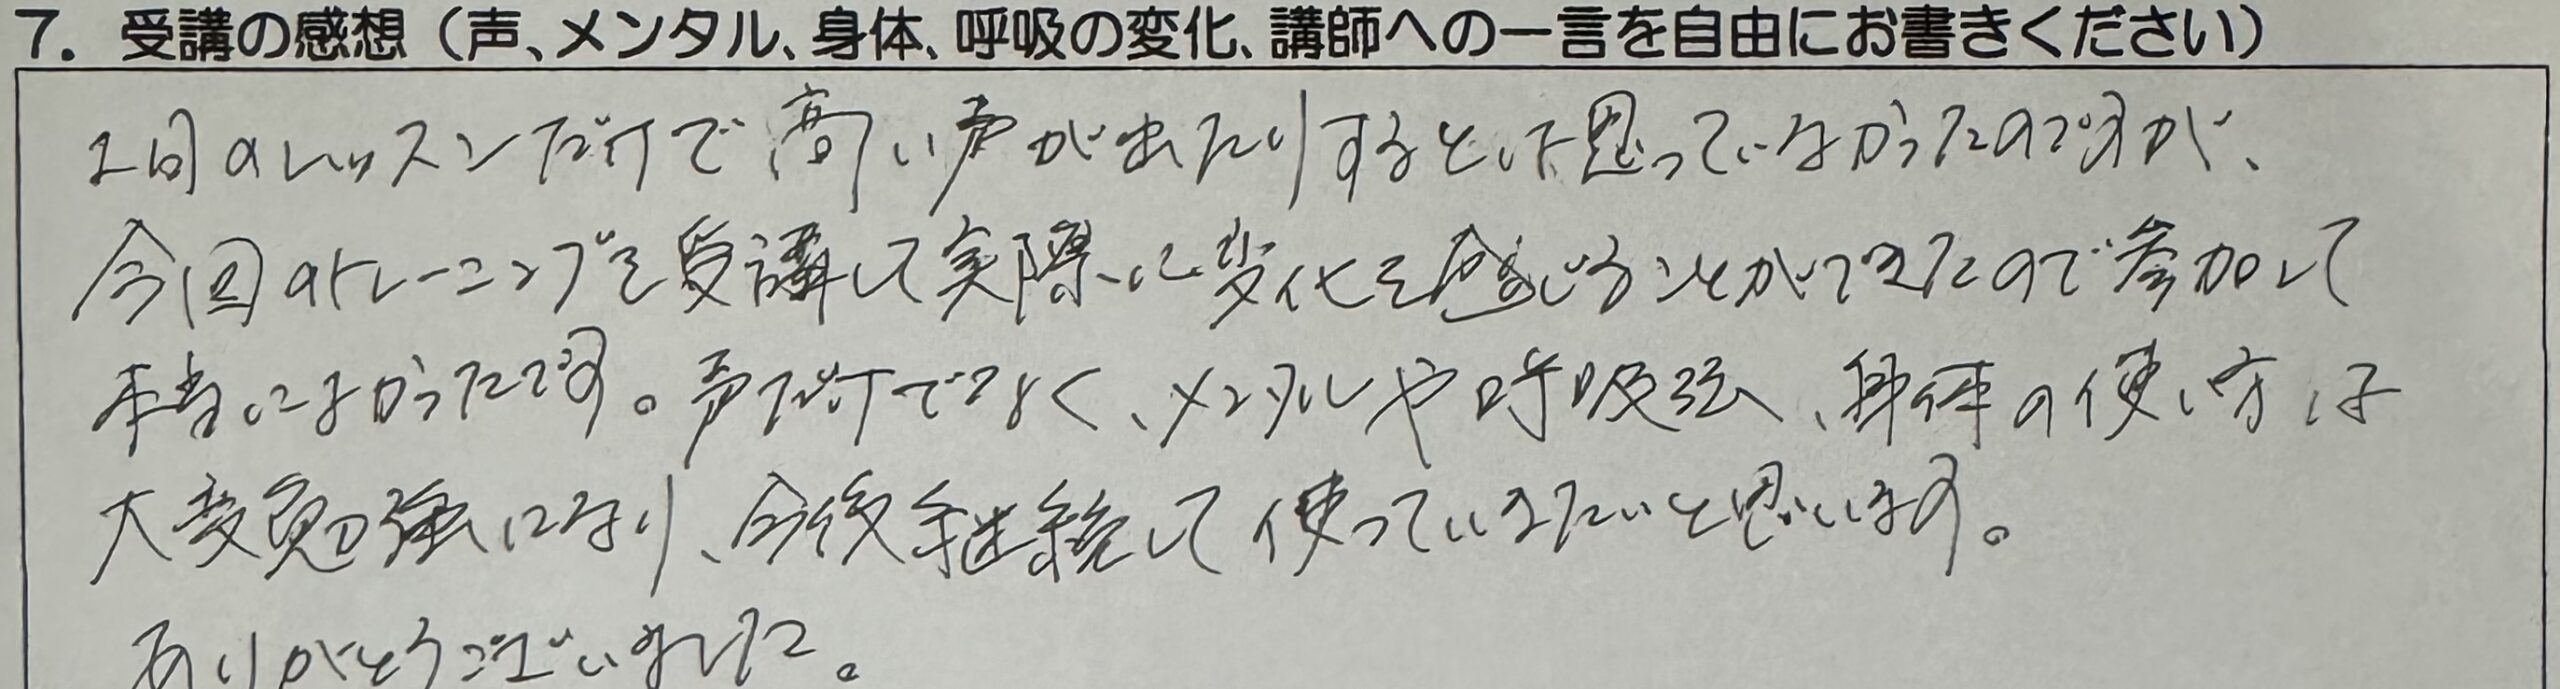 7. 受講の感想（声、メンタル、身体、呼吸の変化、講師への一言を自由にお書きください）
1回のレッスンだけで高い声が出たりするとは思っていなかったのですが、
今回のトレーニングを受講して実際に変化を感じることができたので参加して
本当によかったです。声だけでなく、メンタルや呼吸法、身体の使い方は
大変勉強になり、今後継続して使っていきたいと思います。
ありがとうございました。